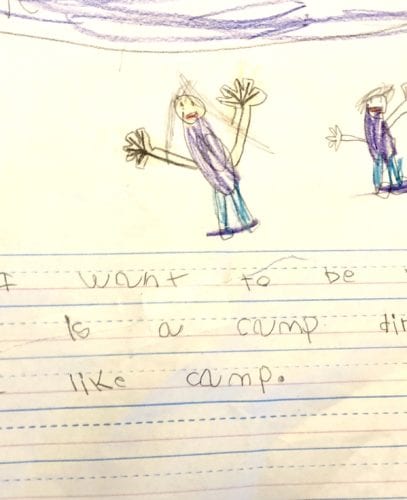 I want to be
Is a camp dir
like camp.